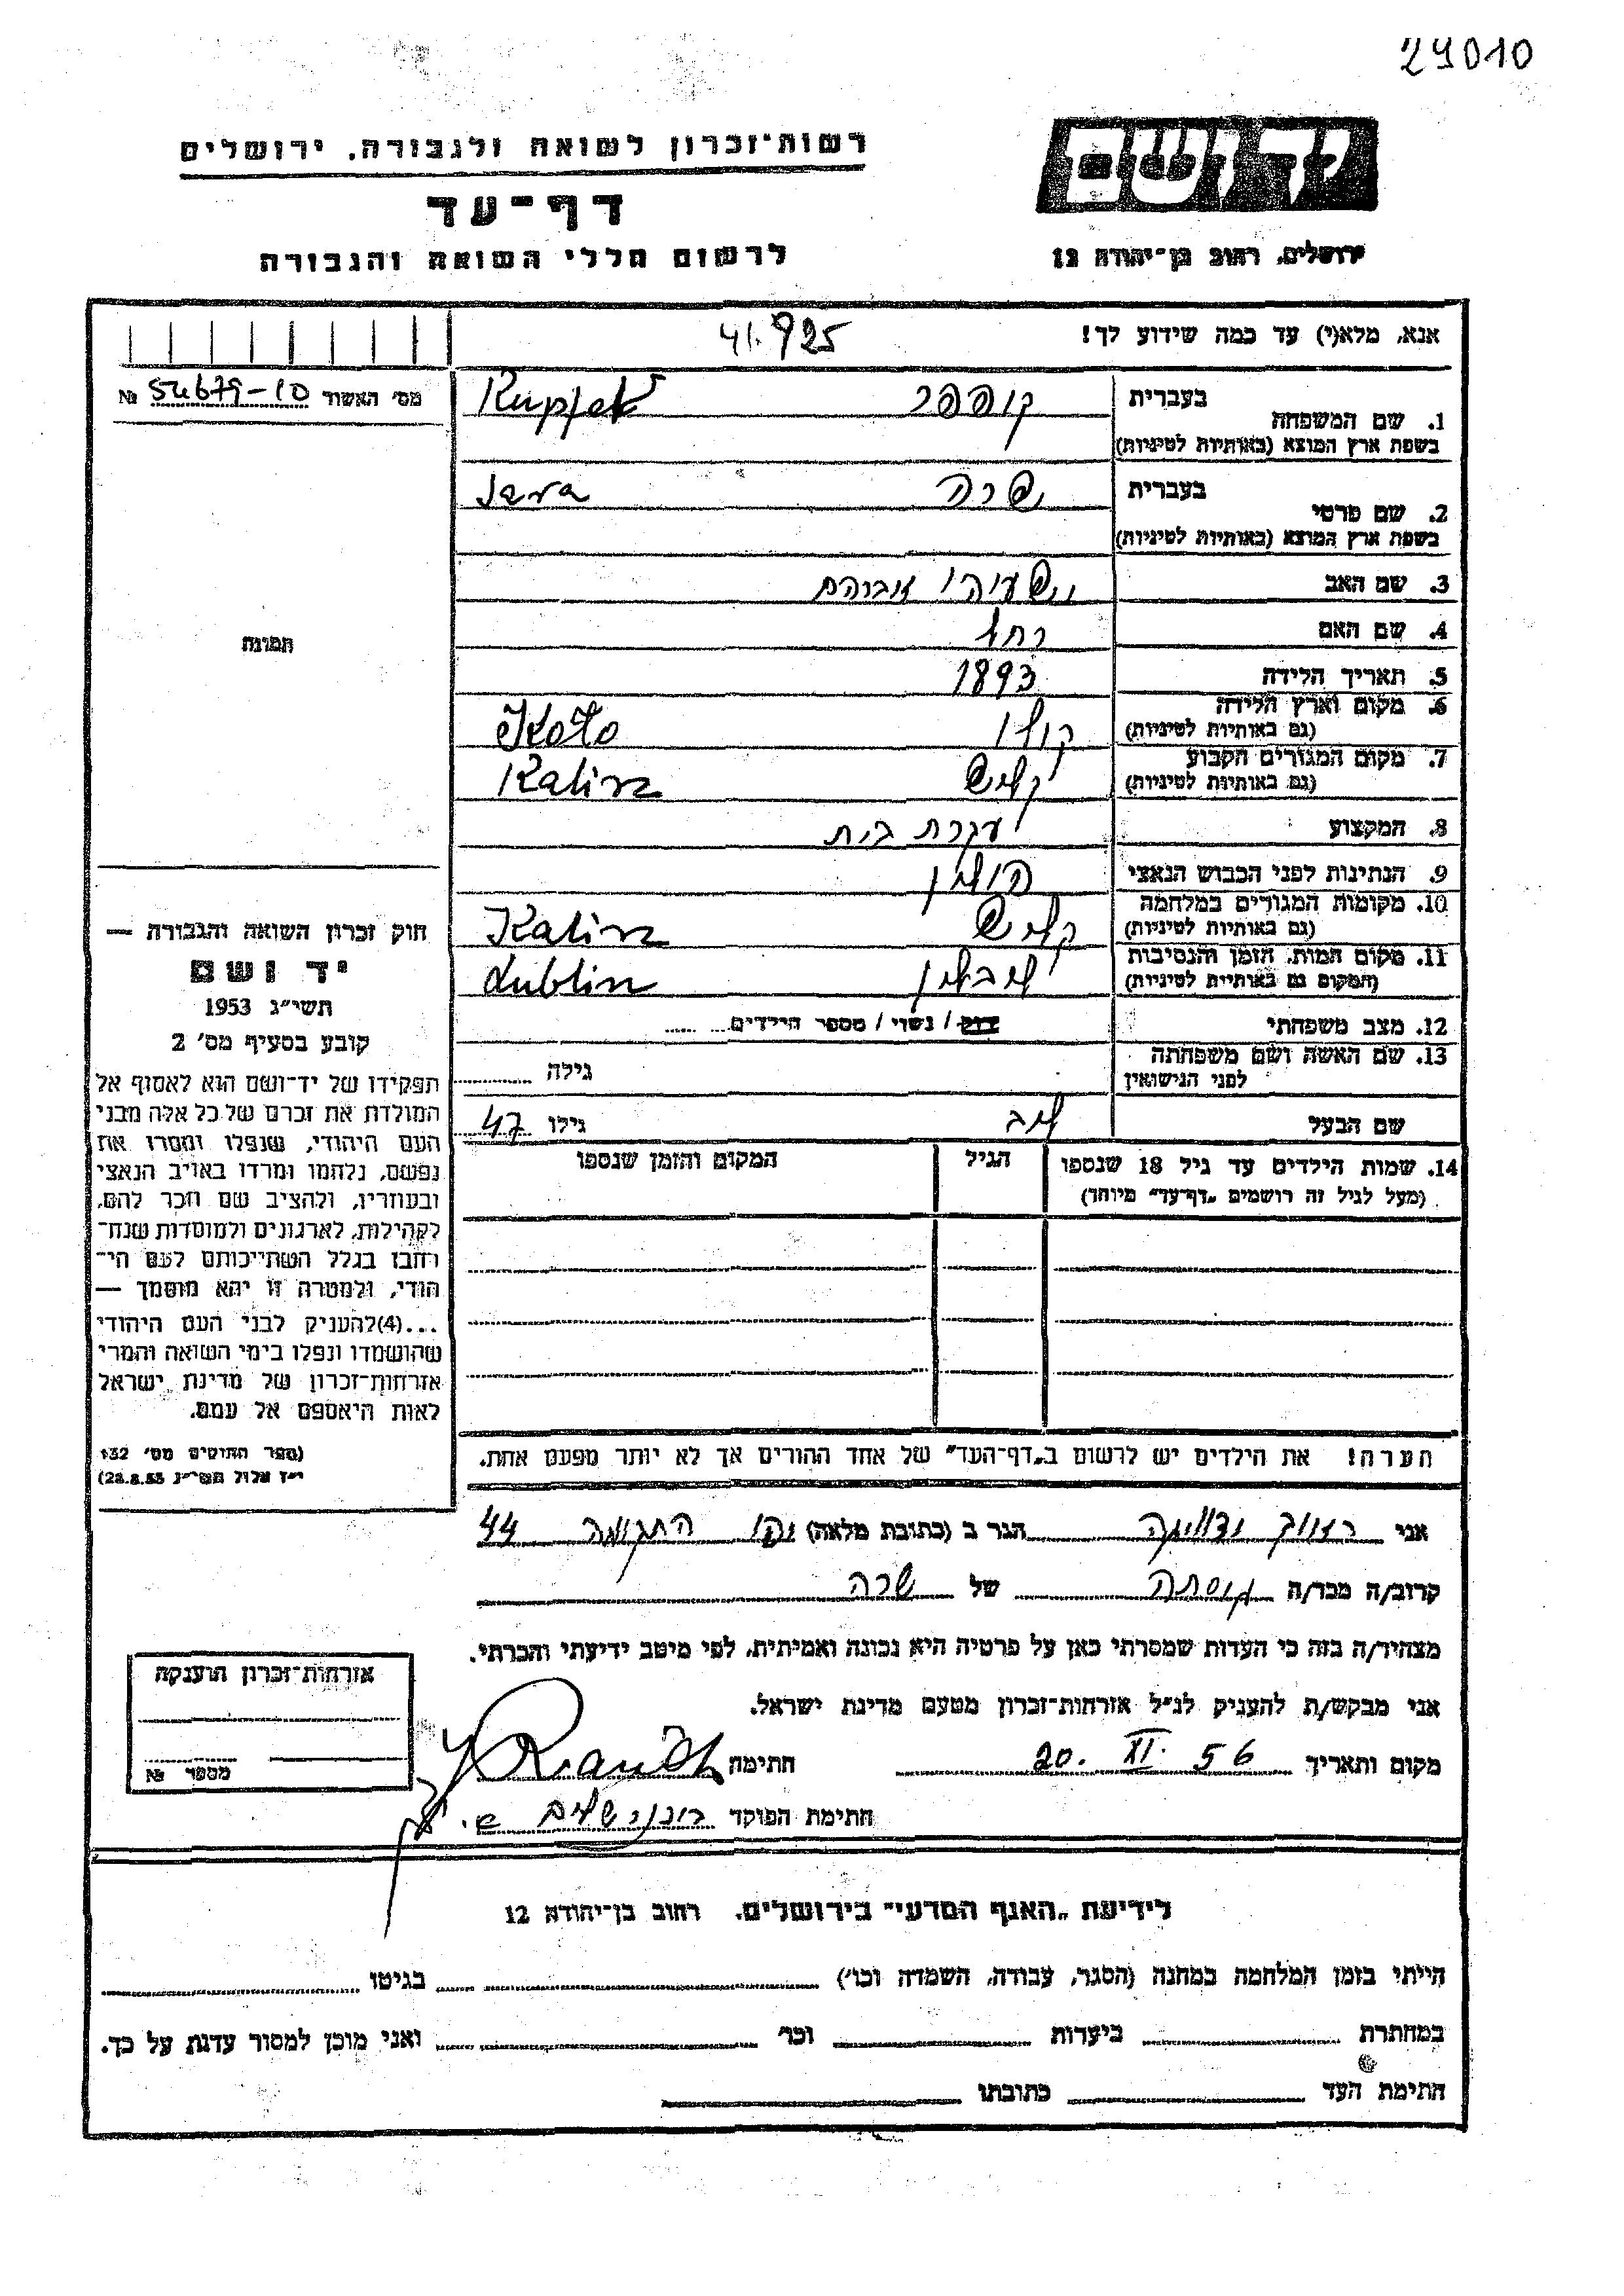 29010
יד ושם
רשות־זכרון לשואה ולגבורה, ירושלים
דף־עד
לרשום חללי השואה והגבורה
ירושלים, רחוב בן־יהודה 12
אנא, מלא(י) עד כמה שידוע לך!
41.925
מס' האשור № 54679-10
בעברית קופפר Kupfer
1. שם המשפחה
בשפת ארץ המוצא (באותיות לטיניות)
בעברית שרה Sara
2. שם פרטי
בשפת ארץ המוצא (באותיות לטיניות)
3. שם האב ישעיהו אברהם
4. שם האם רחל
5. תאריך הלידה 1893
6. מקום וארץ הלידה קולו Koło
(גם באותיות לטיניות)
7. מקום המגורים הקבוע קליש Kalisz
(גם באותיות לטיניות)
8. המקצוע עקרת בית
9. הנתינות לפני הכבוש הנאצי פולין
10. מקומות המגורים במלחמה קליש Kalisz
(גם באותיות לטיניות)
11. מקום המות, הזמן והנסיבות לובלין Lublin
(המקום גם באותיות לטיניות)
12. מצב משפחתי רוק / נשוי / מספר הילדים
13. שם האשה ושם משפחתה גילה
לפני הנישואין
שם הבעל ליב גילו 47
14. שמות הילדים עד גיל 18 שנספו הגיל המקום והזמן שנספו
(מעל לגיל זה רושמים „דף־עד” מיוחד)
הערה! את הילדים יש לרשום ב„דף־העד” של אחד ההורים אך לא יותר מפעם אחת.
תמונה
חוק זכרון השואה והגבורה —
יד ושם
תשי״ג 1953
קובע בסעיף מס' 2
תפקידו של יד־ושם הוא לאסוף אל
המולדת את זכרם של כל אלה מבני
העם היהודי, שנפלו ומסרו את
נפשם, נלחמו ומרדו באויב הנאצי
ובעוזריו, ולהציב שם וזכר להם,
לקהילות, לארגונים ולמוסדות שנח־
רחבו בגלל השתייכותם לעם הי־
הודי, ולמטרה זו יהא מוסמך —
...(4)להעניק לבני העם היהודי
שהושמדו ונפלו בימי השואה והמרי
אזרחות־זכרון של מדינת ישראל
לאות היאספם אל עמם.
(ספר החוקים מס' 132
י״ז אלול תשי״ג 28.8.53)
אני הגר ב (כתובת מלאה) התקומה 44
קרוב/ה מכר/ה גיסתה של שרה
מצהיר/ה בזה כי העדות שמסרתי כאן על פרטיה היא נכונה ואמיתית, לפי מיטב ידיעתי והכרתי.
אני מבקש/ת להעניק לנ״ל אזרחות־זכרון מטעם מדינת ישראל.
מקום ותאריך 20. XI. 56 חתימה
חתימת הפוקד
אזרחות־זכרון הוענקה
מספר №
לידיעת „האגף המדעי” בירושלים, רחוב בן־יהודה 12
הייתי בזמן המלחמה במחנה (הסגר, עבודה, השמדה וכו') בגיטו
במחתרת ביערות וכו' ואני מוכן למסור עדות על כך.
חתימת העד כתובתו